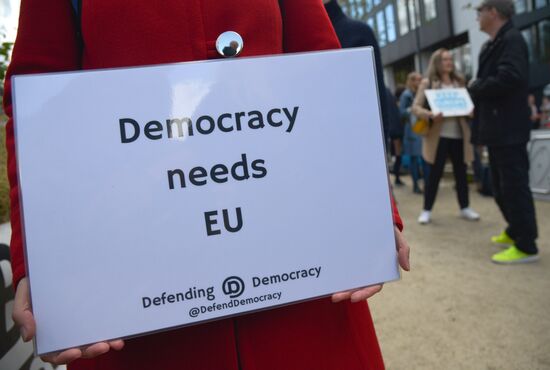 Democracy
needs
EU
Defending D Democracy
@DefendDemocracy